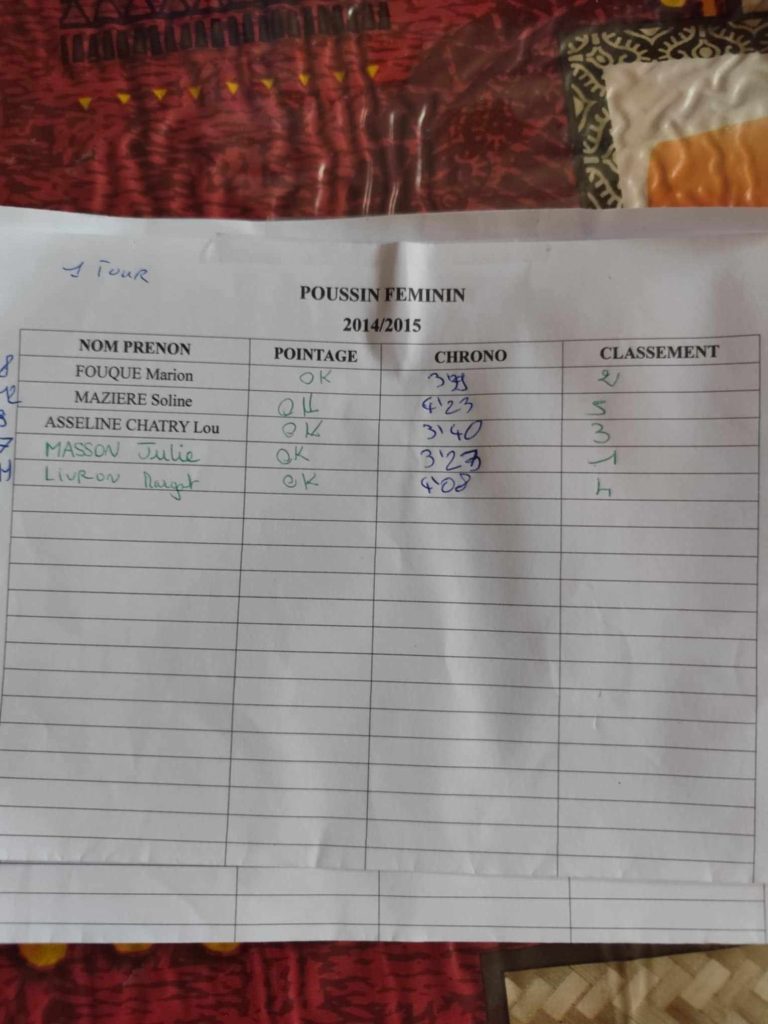 1 TOUR
POUSSIN FEMININ
2014/2015
NOM PRENON POINTAGE CHRONO CLASSEMENT
8 FOUQUE Marion OK 2
MAZIERE Soline OK 4'23 5
ASSELINE CHATRY Lou OK 3'40 3
7 MASSON Julie OK 3'27 1
LIVRON Margot OK 4'08 4